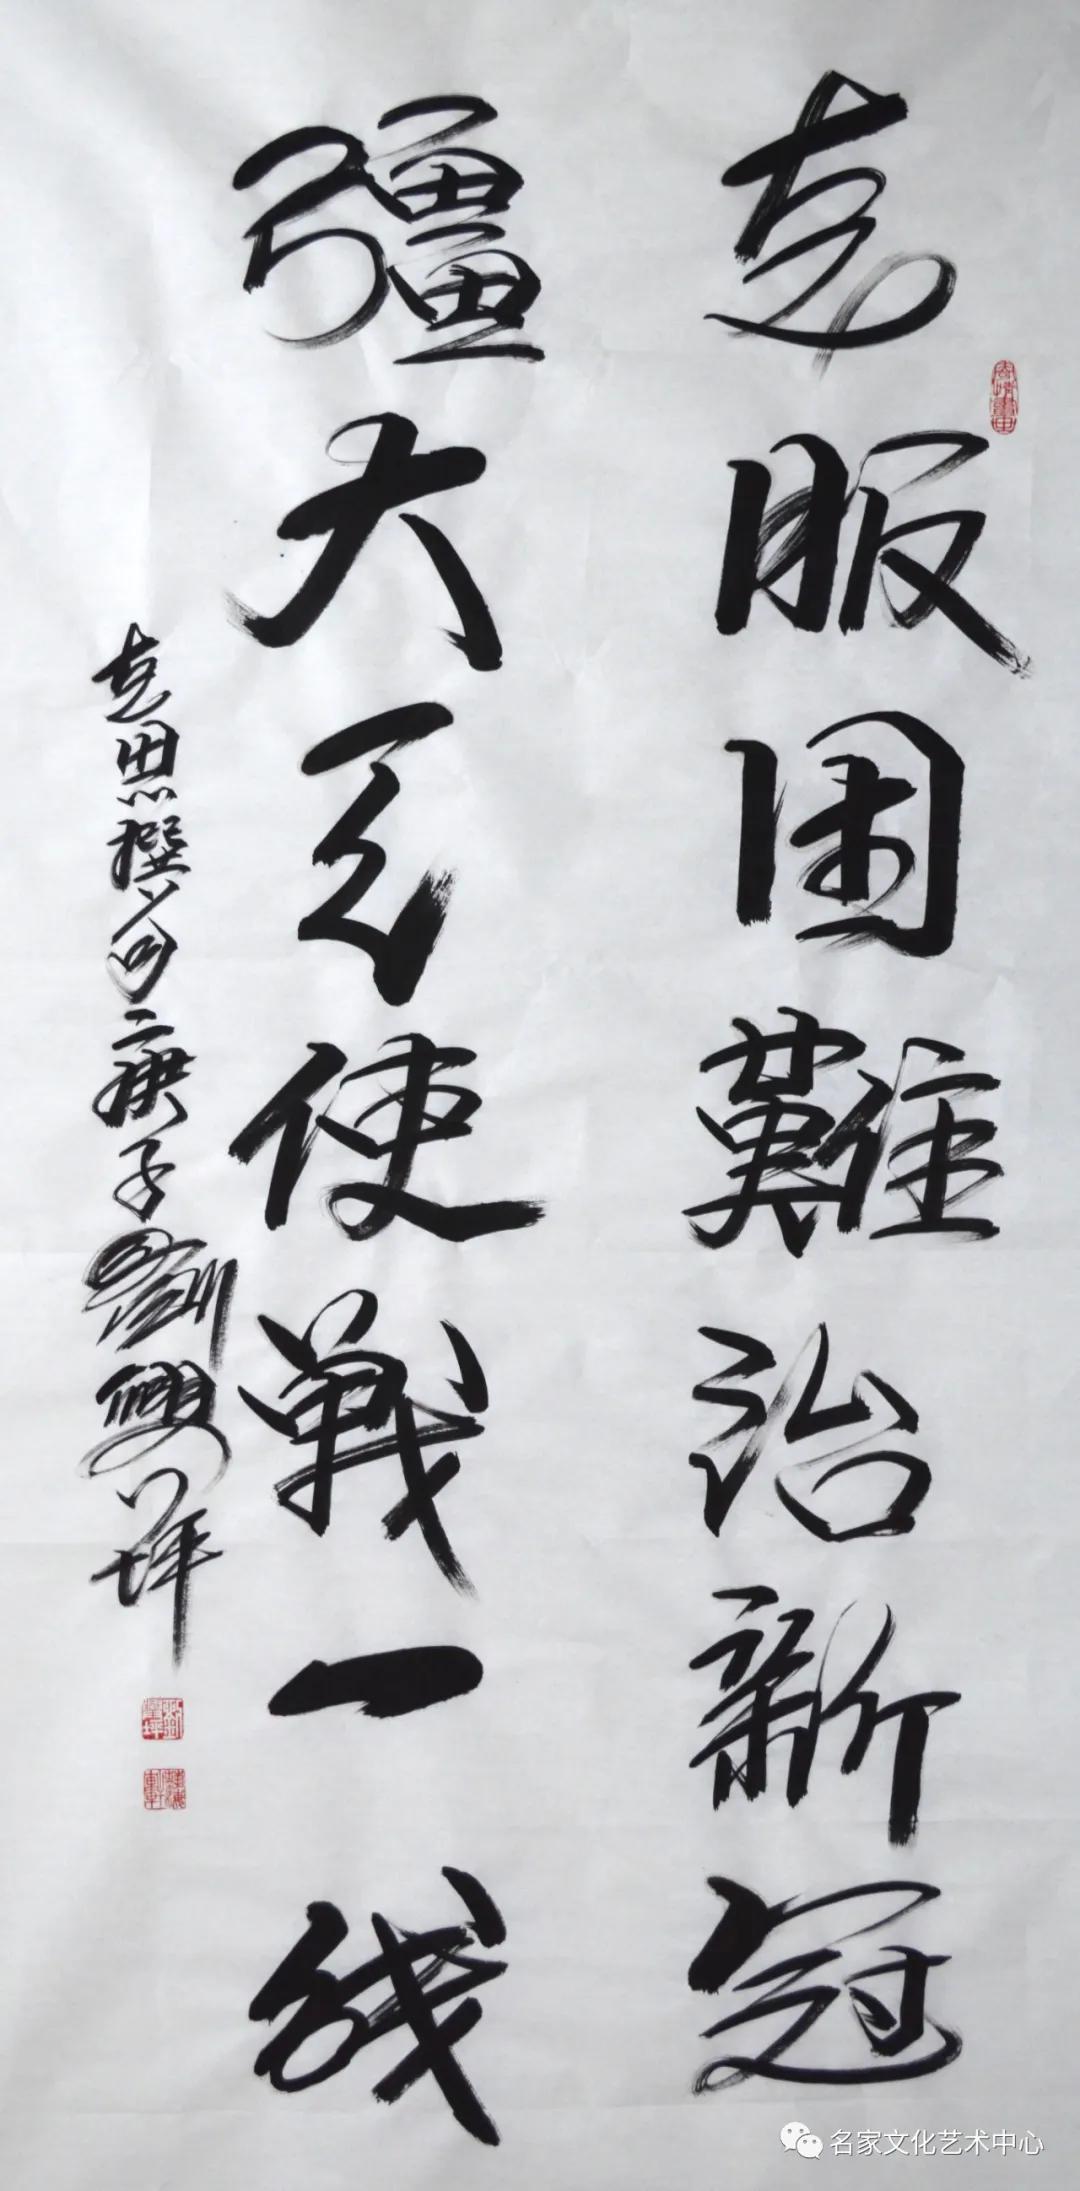 克服困難治新冠
彊大天使戰一线
克思撰句庚子劉興坪
名家文化艺术中心